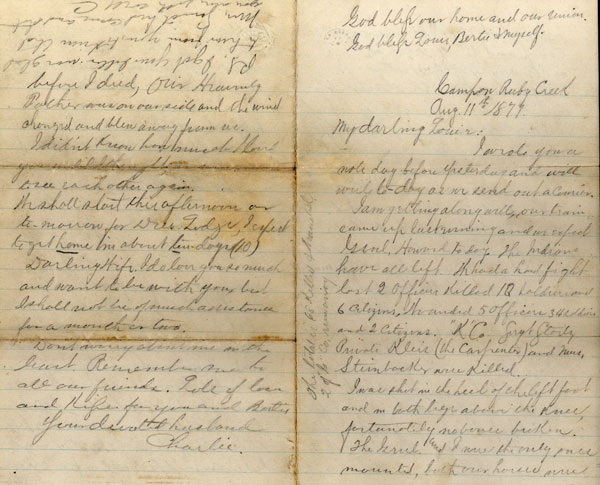 God bless our home and our union.
God bless Louis Bertie & myself.
Camp on Ruby Creek
Aug. 11th/1877.
My darling Louie:
I wrote you a
note day before yesterday and will
write to-day as we send out a Courier.
I am getting along well, our train
came up last evening and we expect
Genl. Howard to-day. The Indians
have all left. We had a hard fight
lost 2 Officers Killed 18 soldiers and
6 Citizens. Wounded 5 Officers 34 soldiers
and 2 Citizens. "K" Co. Sergt
Private Kleis (the Carpenter) and Mus.
Steinbacker were Killed.
I was shot in the heel of the left foot
and in both legs above the Knee
fortunately no bones broken.
The Genl. and I were the only ones
mounted, both our horses were
before I died, Our Heavenly
Father was on our side and the wind
changed and blew away from us.
I didn't know how much I loved
you until I thought
to see each other again.
We shall start this afternoon or
to-morrow for Deer Lodge, I expect
to get home in about ten days (10)
Darling Wife, I do love you so much
and want to be with you but
I shall not be of much assistance
for a month or two.
Don't worry about me in the
least. Remember me to
all our friends. Lots of love
and Kisses for you and Bertie
Your devoted husband
Charlie.